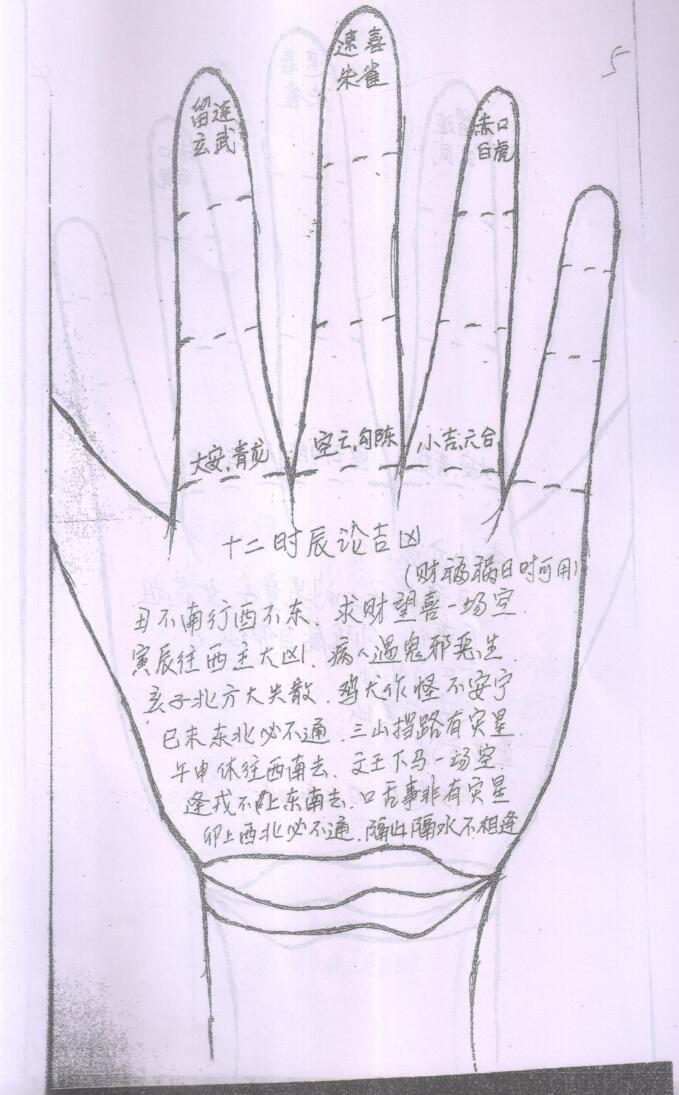 5
速喜
朱雀
留连
玄武
赤口
白虎
大安.青龙
空亡.勾陈
小吉.六合
十二时辰论吉凶
(财福祸日时可用)
丑不南行西不东、求财望喜一场空.
寅辰往西主大凶、病人遇鬼邪恶生.
亥子北方大失散、鸡犬作怪不安宁
巳未东北必不通、三山挡路有灾星.
午申休往西南去、文王下马一场空.
逢戌不上东南去、口舌事非有灾星
卯上西北必不通、隔山隔水不相逢